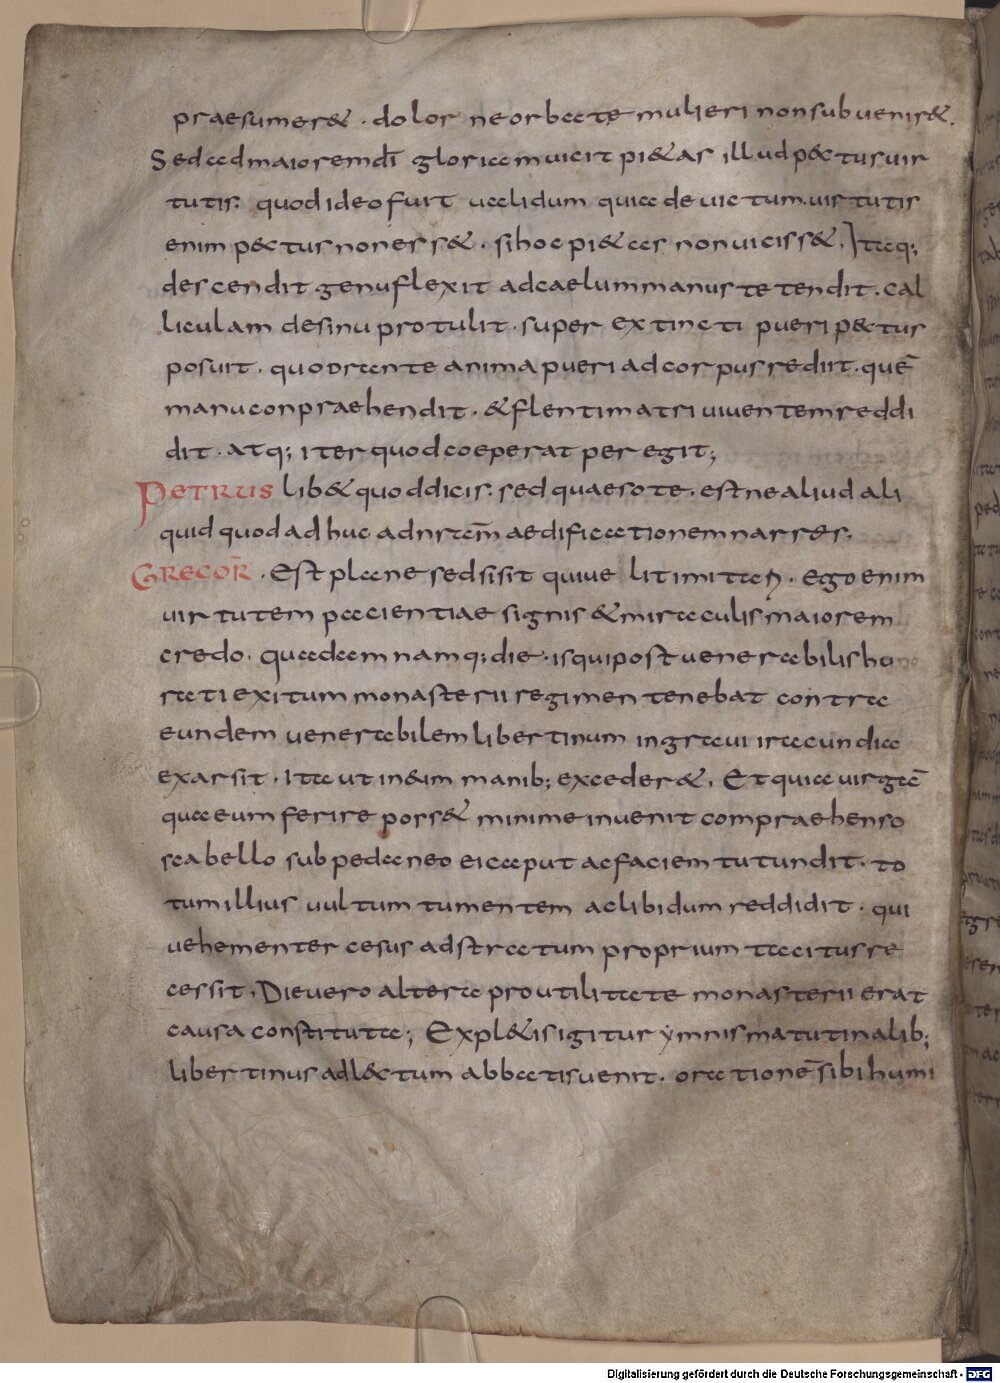 praesumer&. dolor ne orbate mulieri non subuenir&.
Sed ad maiorem dī gloriam uicit pi&as illud p&ctus uir
tutis: quod ideo fuit ualidum quia deuictum. uirtutis
enim p&ctus non ess&. si hoc pi&as non uiciss&. Itaq;
descendit genu flexit ad caelum manus tetendit. cal
liculam de sinu protulit. super extincti pueri p&ctus
posuit. quo orante anima pueri ad corpus rediit. quē
manu conpraehendit. & flenti matri uiuentem reddi
dit. atq; iter quod coeperat peregit;
PETRUS lib& quod dicis: sed quaeso te. estne aliud ali
quid quod adhuc ad nr̄am aedificationem narres.
GREGOR̄. Est plane sed si sit qui uelit imitari. Ego enim
uirtutem pacientiae signis & miraculis maiorem
credo. quadam namq; die. is qui post uenerabilis hono
rati exitum monasterii regimen tenebat contra
eundem uenerabilem libertinum in graui iracundia
exarsit. Ita ut in eum manib; exceder&. Et quia uirgā
qua eum ferire poss& minime inuenit compraehenso
scabello subpedaneo ei caput ac faciem tutundit. to
tum illius uultum tumentem ac libidum reddidit. qui
uehementer cesus ad stratum proprium tacitus re
cessit. Die uero altera pro utilitate monasterii erat
causa constituta; Expl&is igitur ymnis matutinalib;
libertinus ad l&ctum abbatis uenit. orationē sibi humi
Digitalisierung gefördert durch die Deutsche Forschungsgemeinschaft - DFG